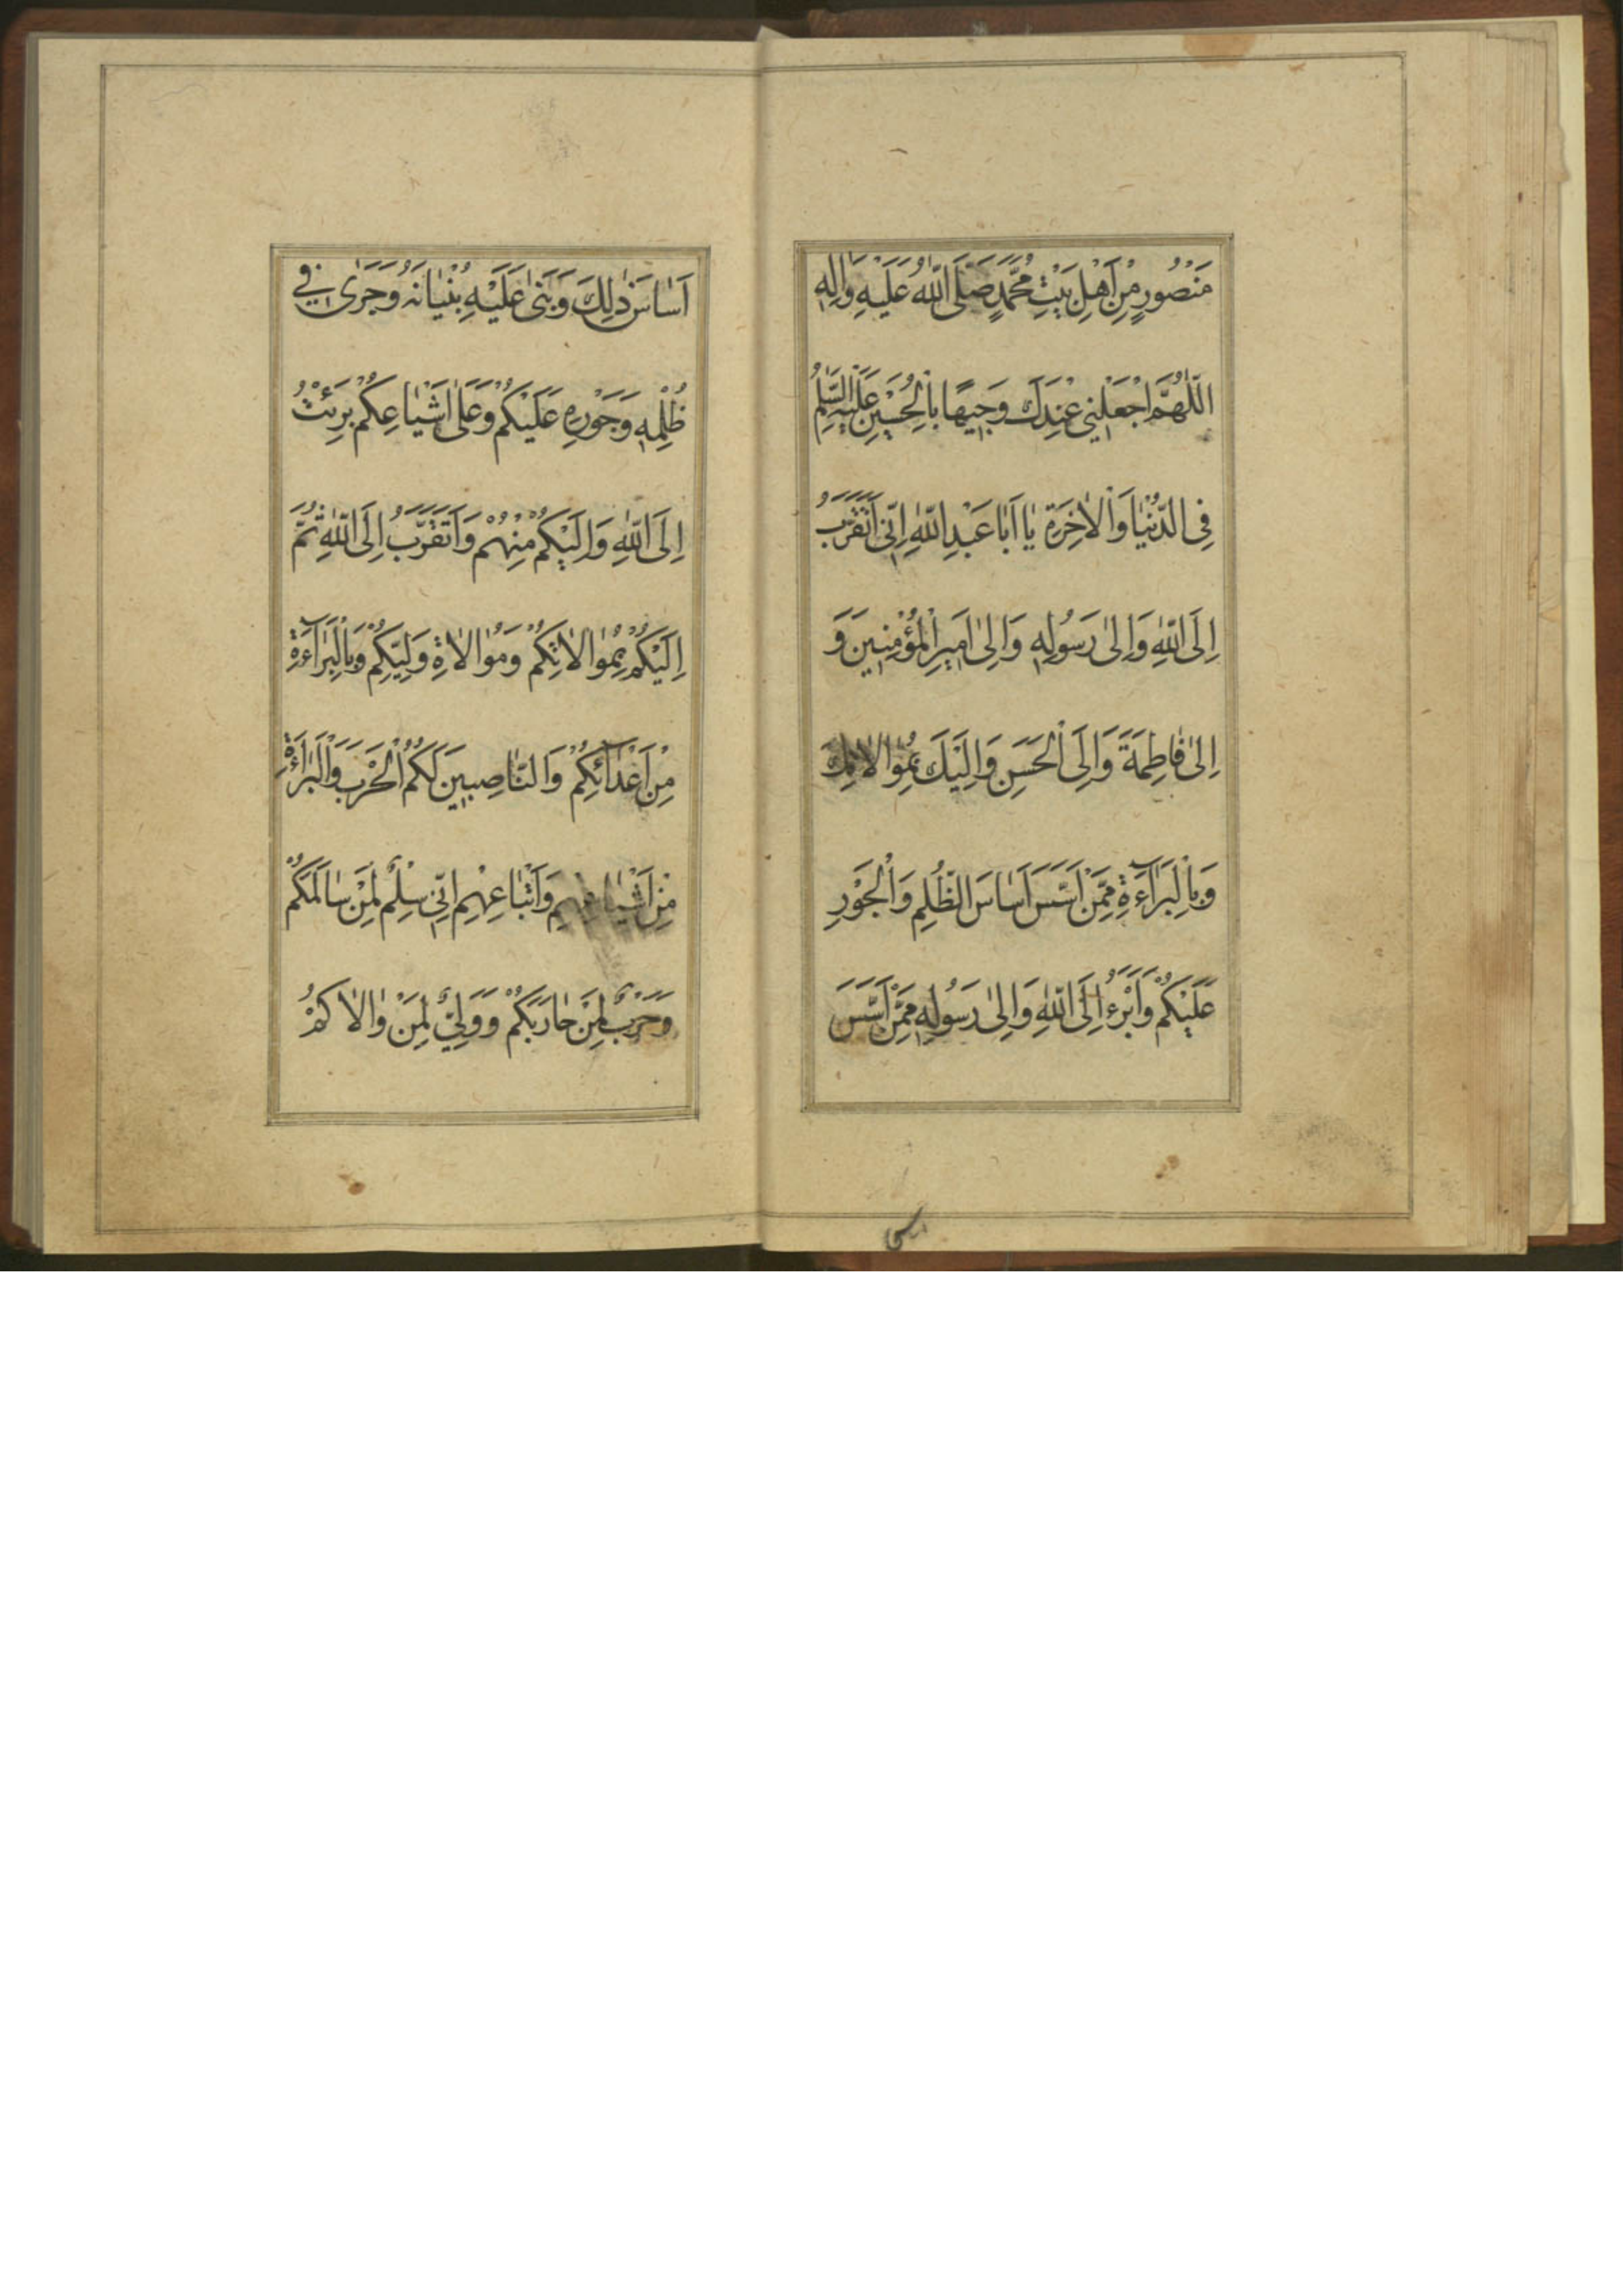 مَنْصُورٍ مِنْ اَهْلِ بَيْتِ مُحَمَّدٍ صَلَّى اللّٰهُ عَلَيْهِ وَاٰلِهِ
اَللّٰهُمَّ اجْعَلْنِي عِنْدَكَ وَجِيهًا بِالْحُسَيْنِ عَلَيْهِ السَّلٰمُ
فِي الدُّنْيٰا وَالْاٰخِرَةِ يٰا اَبٰا عَبْدِ اللّٰهِ اِنّي اَتَقَرَّبُ
اِلَى اللّٰهِ وَاِلىٰ رَسُولِهِ وَاِلىٰ اَمِيرِ الْمُؤْمِنِينَ وَ
اِلىٰ فٰاطِمَةَ وَاِلَى الْحَسَنِ وَاِلَيْكَ بِمُوٰالاٰتِكَ
وَبِالْبَرٰاۤءَةِ مِمَّنْ اَسَّسَ اَسٰاسَ الظُّلْمِ وَالْجَوْرِ
عَلَيْكُمْ وَاَبْرَءُ اِلَى اللّٰهِ وَاِلىٰ رَسُولِهِ مِمَّنْ اَسَّسَ
اَسٰاسَ ذٰلِكَ وَبَنىٰ عَلَيْهِ بُنْيٰانَهُ وَجَرىٰ فِي
ظُلْمِهِ وَجَوْرِهِ عَلَيْكُمْ وَعَلىٰ اَشْيٰاعِكُمْ بَرِئْتُ
اِلَى اللّٰهِ وَاِلَيْكُمْ مِنْهُمْ وَاَتَقَرَّبُ اِلَى اللّٰهِ ثُمَّ
اِلَيْكُمْ بِمُوٰالاٰتِكُمْ وَمُوٰالاٰةِ وَلِيِّكُمْ وَبِالْبَرٰاۤءَةِ
مِنْ اَعْدٰاۤئِكُمْ وَالنّٰاصِبِينَ لَكُمُ الْحَرْبَ وَالْبَرٰاۤءَةِ
مِنْ اَشْيٰاعِهِمْ وَاَتْبٰاعِهِمْ اِنّي سِلْمٌ لِمَنْ سٰالَمَكُمْ
وَحَرْبٌ لِمَنْ حٰارَبَكُمْ وَوَلِيٌّ لِمَنْ وٰالاٰكُمْ
اساس